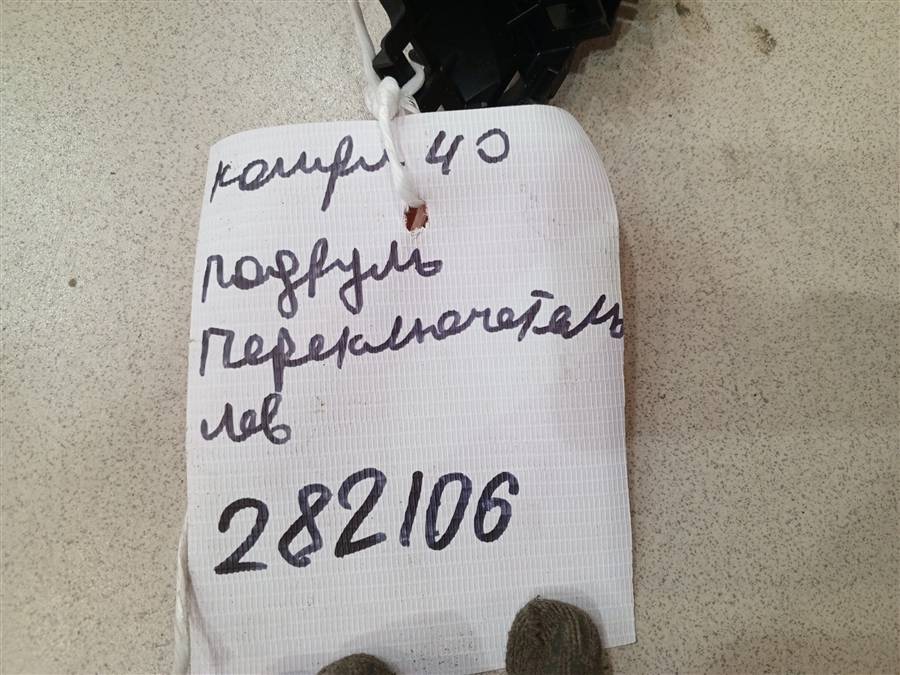 камри 40
подруль
переключетель
лев
282106